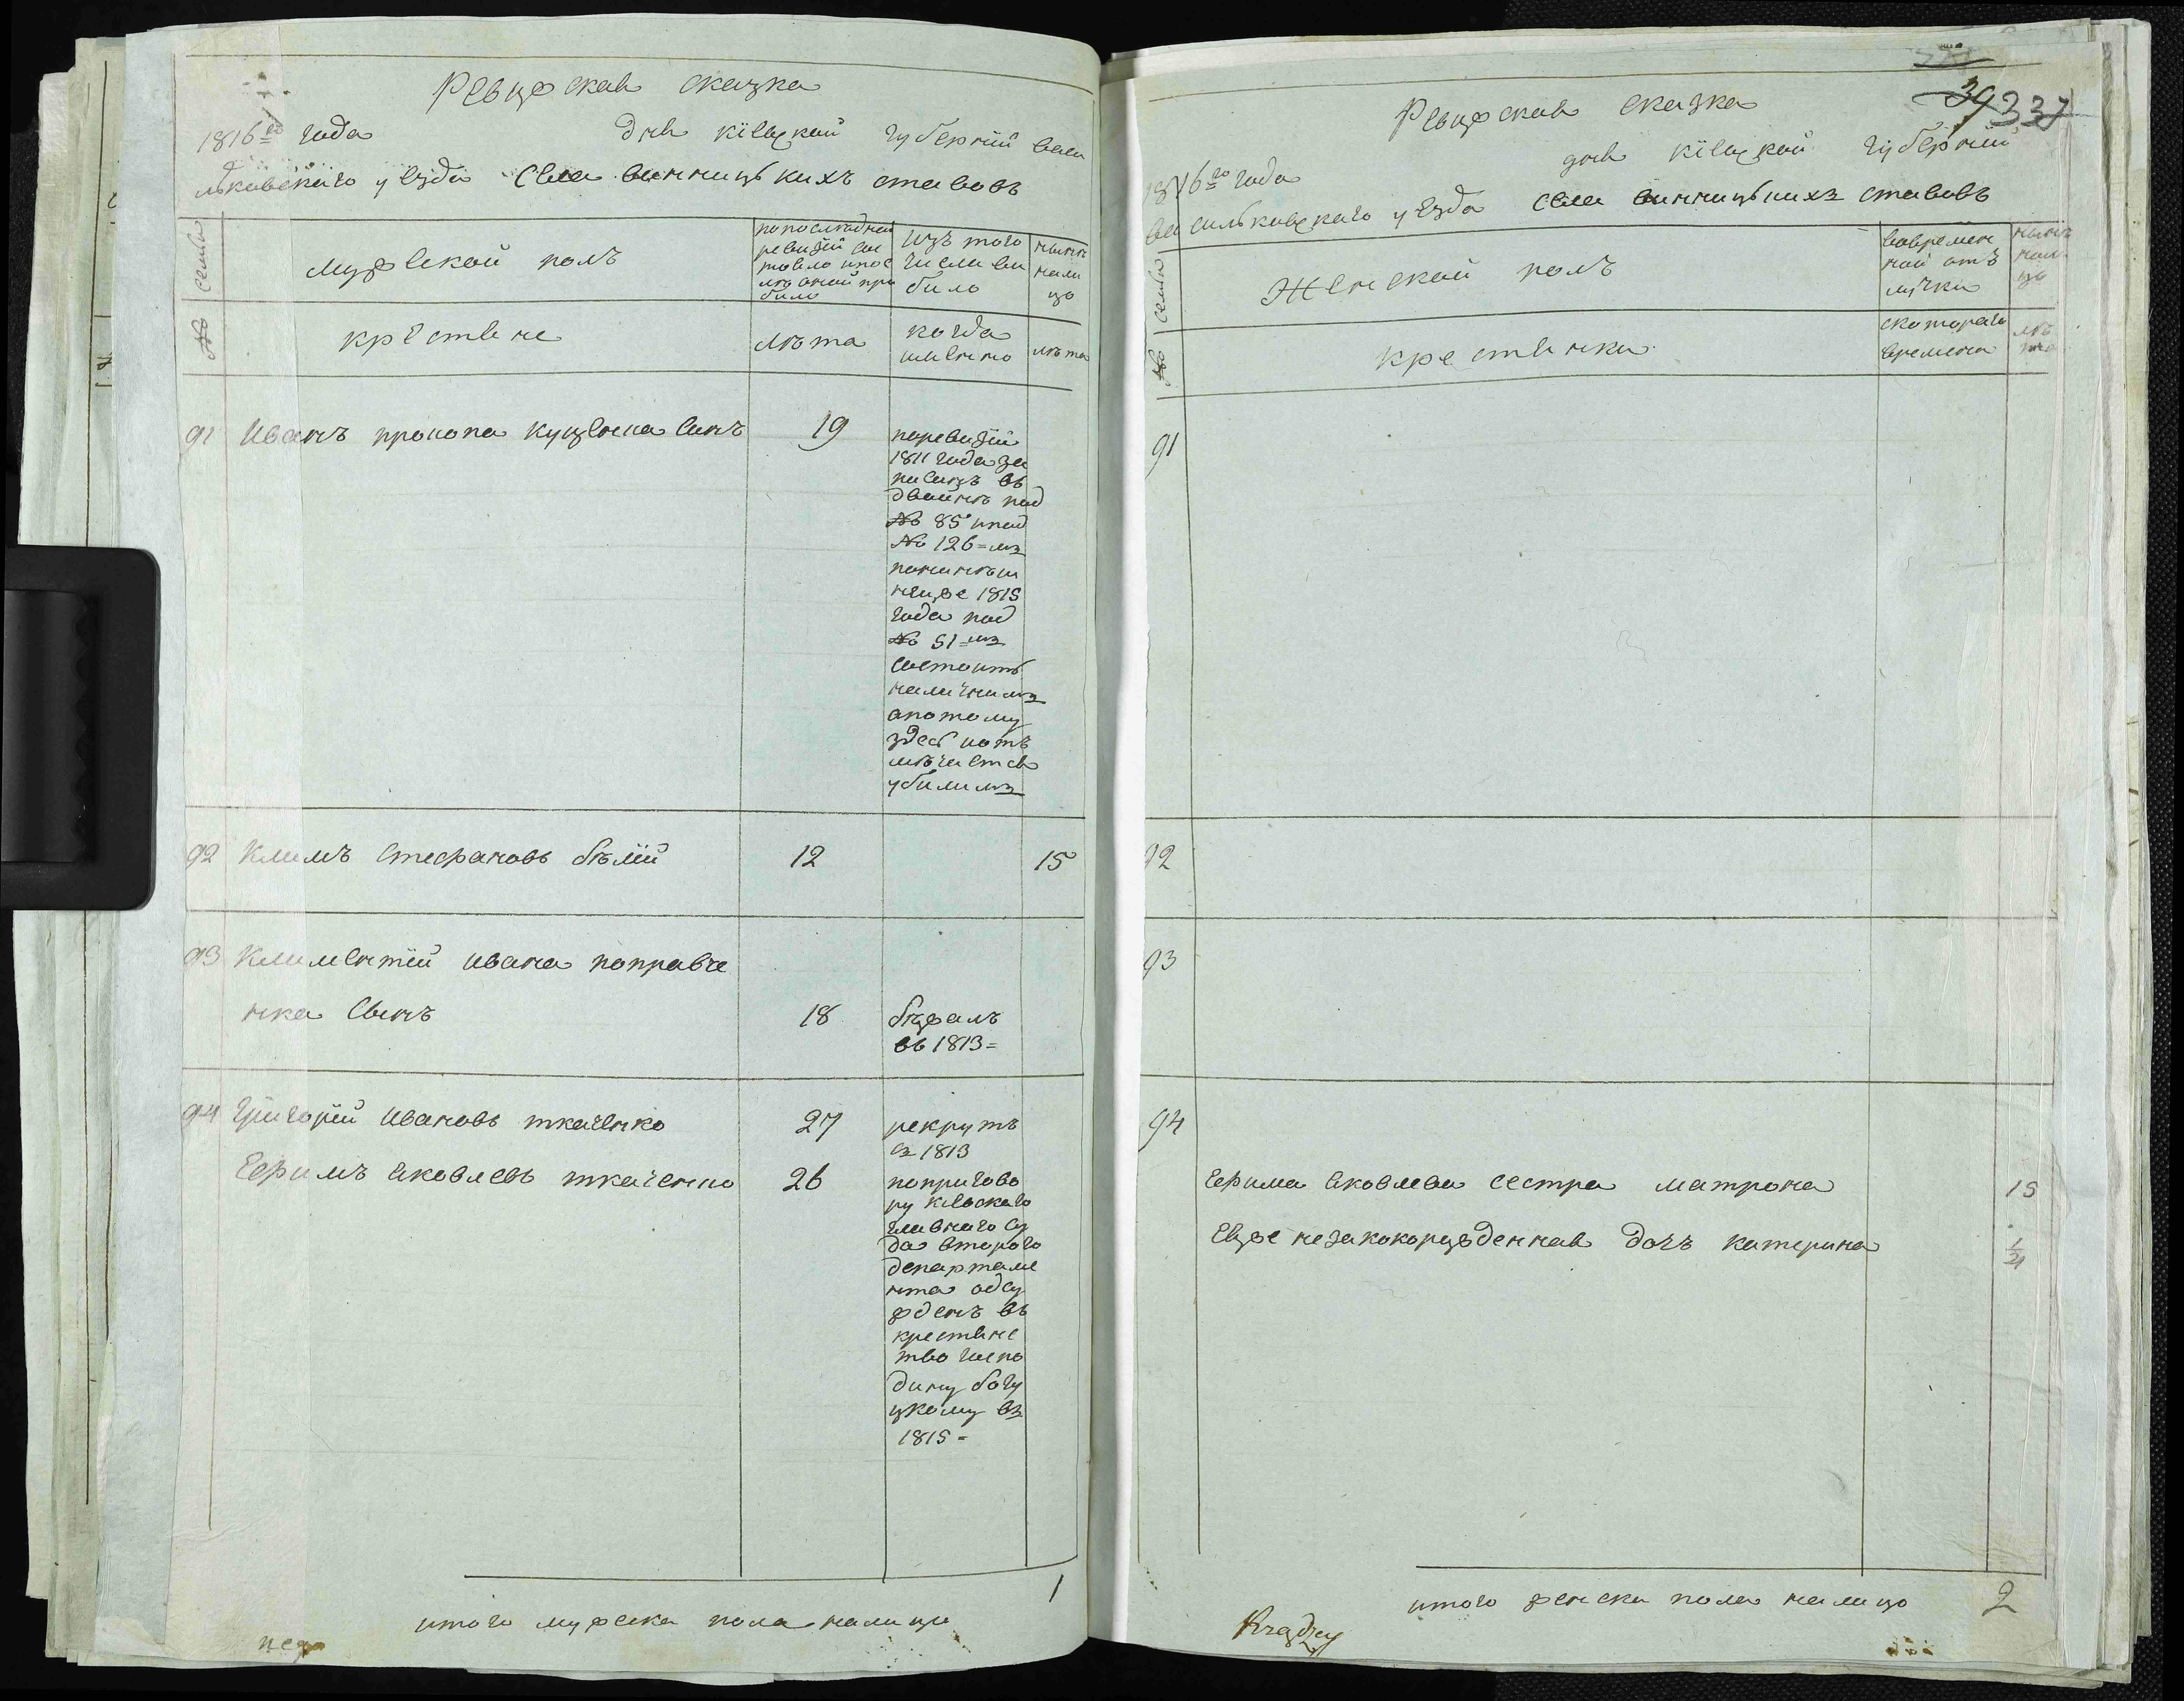 Ревижская сказка
1816го года дня кіевской губерніи васи
льковскаго уезда села винницькихъ ставовъ
№ семьи
мужеской полъ
попоследней
ревизіи сос
тояло ипос
ле оной при
было
Изъ того
числа ви
било
нынѣ
нали
цо
крестяне
лѣта
когда
имянно
лѣта
91 Иванъ прокопа куценка синъ 19
поревизіи
1811 года за
писанъ въ
двойнѣ под
№ 85 ипод
№ 126=мъ
понинѣш
нецже 1815
года под
№ 51=мъ
состоитъ
наличнимъ
апотому
здесь иот
мѣчается
убилимъ
92 Климъ Стефановъ бѣлій 12 15
93 Климентій ивана поправче
нка Сынъ 18 бѣжалъ
въ 1813=
94 Григорій Ивановъ ткаченко 27 рекрутъ
съ 1813
Ефимъ яковлевъ ткаченко 26 попригово
ру кіевскаго
главнаго су
да втораго
департаме
нта одсу
жденъ въ
крестянс
тво госпо
дину богу
цкому въ
1815=
1
итого мужеска пола налицо
39 337
Ревижская сказка
1816го года дня кіевской губерніи
васильковскаго уезда села винницькихъ ставовъ
№ семьи
Женской полъ
вовремен
ной отъ
лучки
нынѣ
нали
цо
крестянки
скотораго
времена
лѣ
та
91
92
93
94
Ефима яковлева сестра матрона 15
Еяже незаконорожденная дочь катерина 1/2
итого женска пола налицо 2